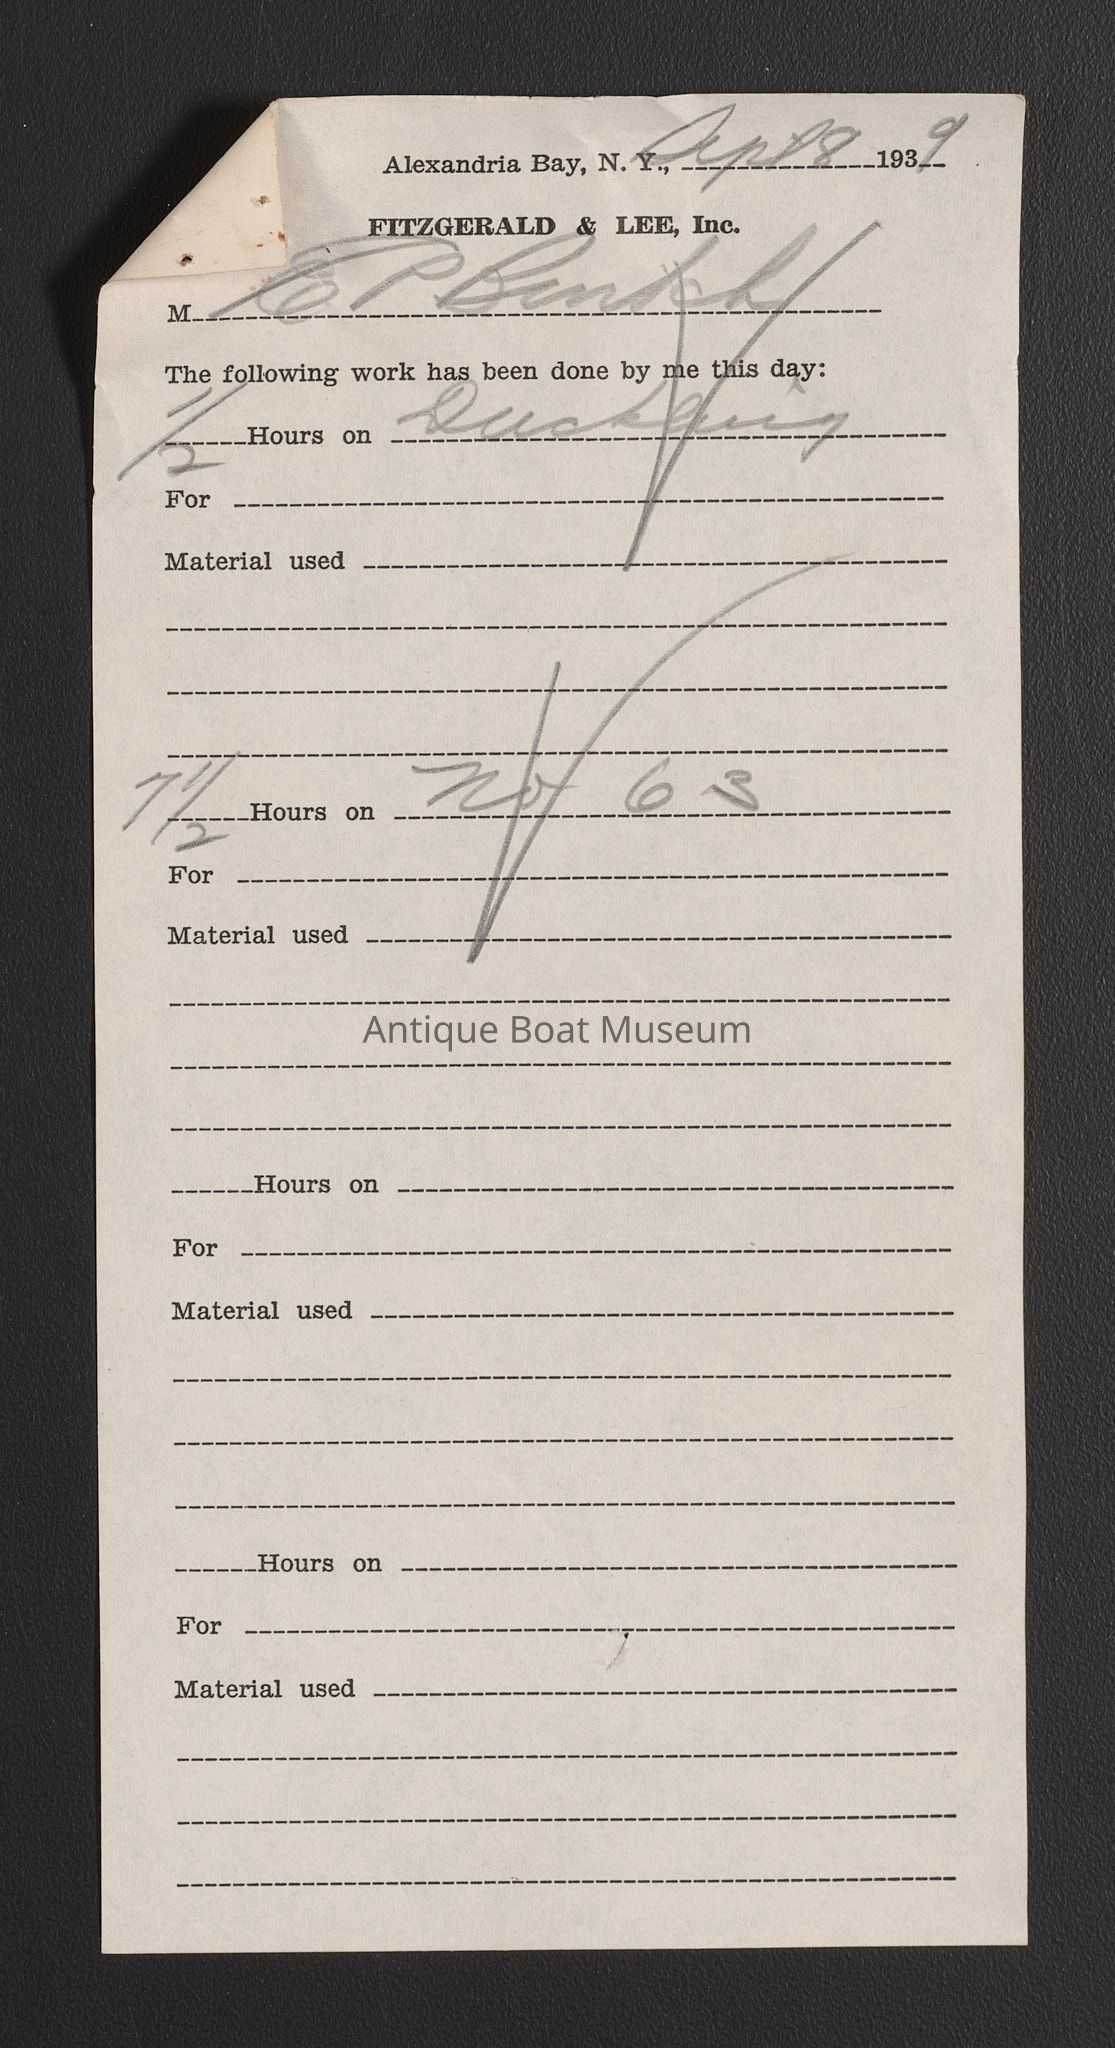 Alexandria Bay, N. Y., Sept 8 1939
FITZGERALD & LEE, Inc.
M E P
The following work has been done by me this day:
1/2 Hours on
For
Material used
7 1/2 Hours on No 63
For
Material used
Antique Boat Museum
Hours on
For
Material used
Hours on
For
Material used